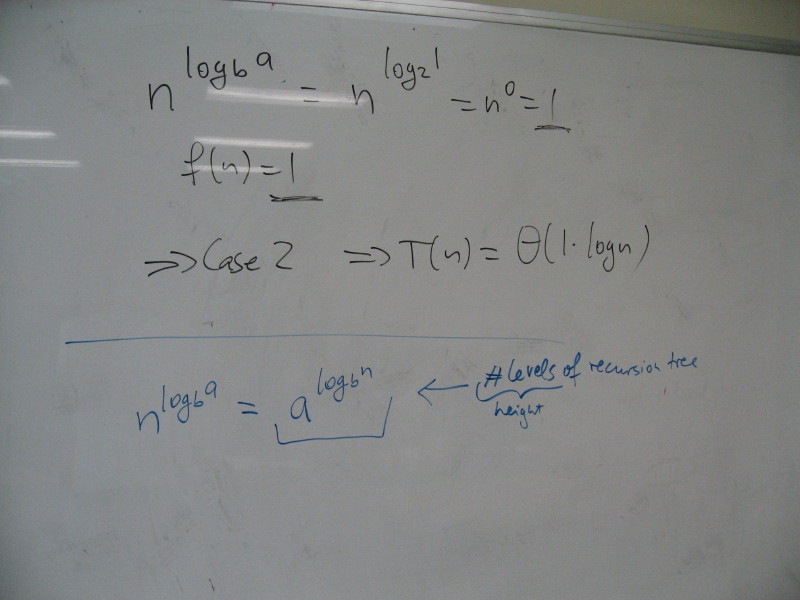 n^{log_b a} = n^{log_2 1} = n^0 = 1
f(n) = 1
⇒ Case 2 ⇒ T(n) = Θ(1·logn)
n^{log_b a} = a^{log_b n} ← # levels of recursion tree
height